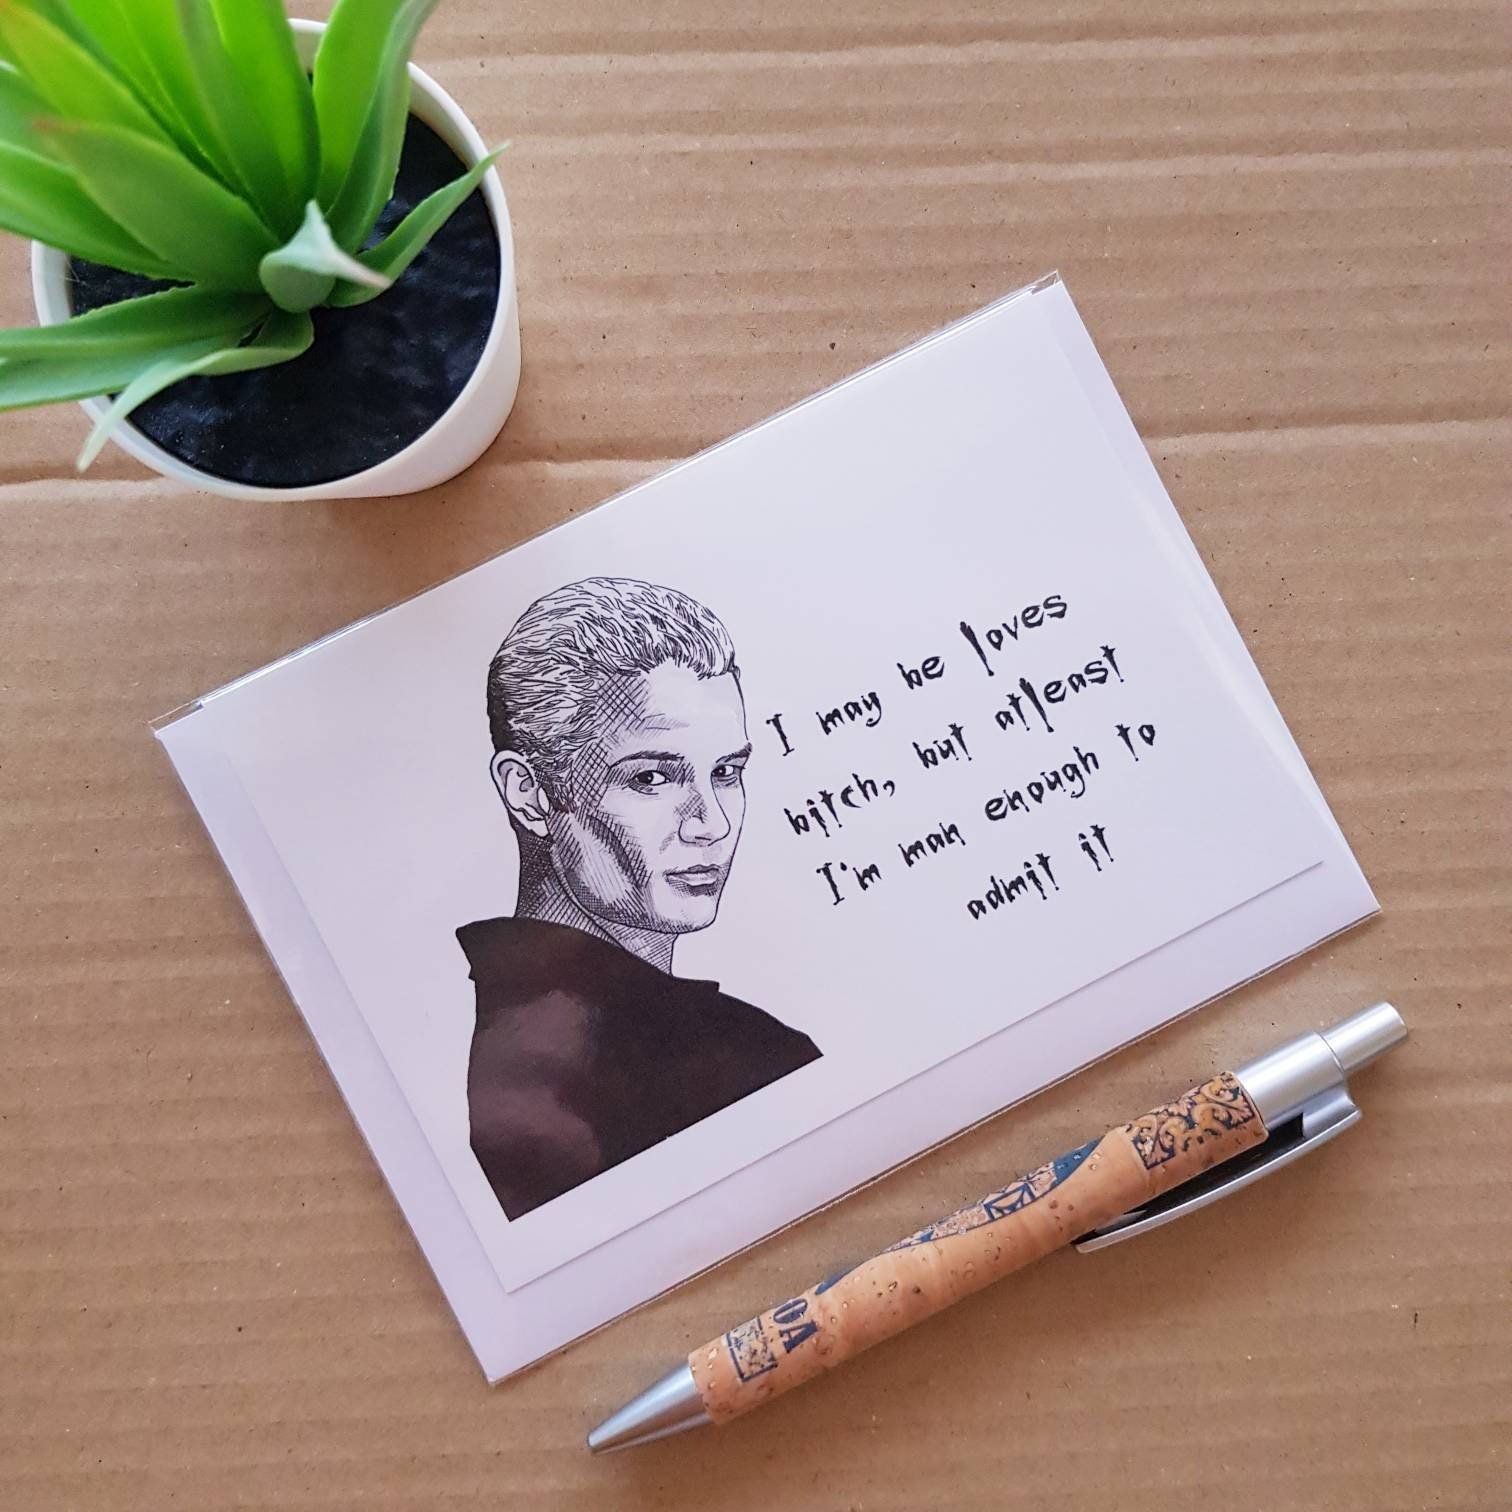 I may be loves
bitch, but atleast
I'm man enough to
admit it
OA